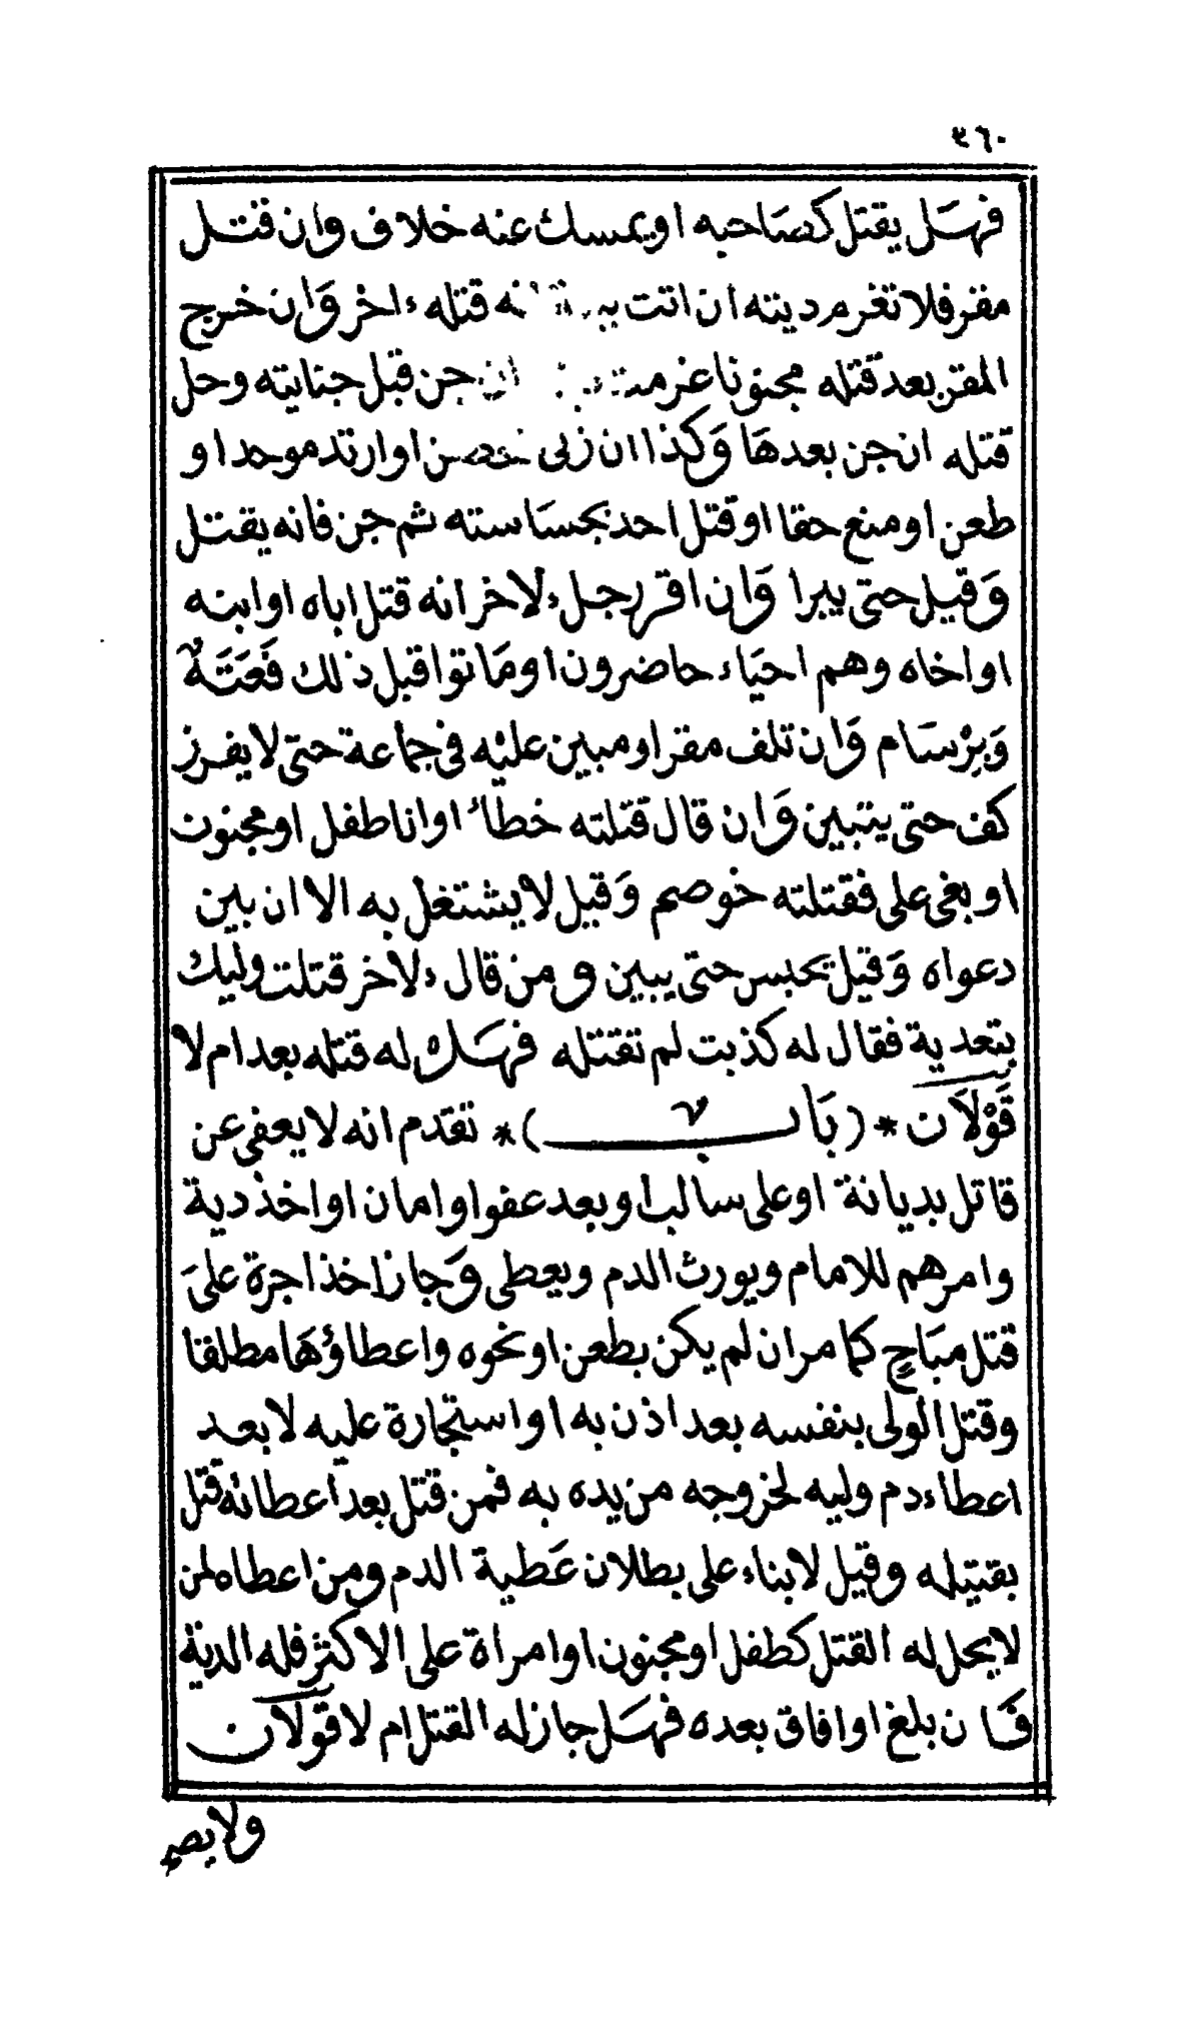 ٣٦٠
فهَل يقتل كصَاحبه او يمسك عنه خلاف وان قتل
مقر فلا تغرم ديته ان اتت قتله ءاخر وَان خرج
المقر بعد قتله مجنونا غرم ان جن قبل جنايته وحل
قتله ان جن بعدهَا وَكذا ان زنى محصن او ارتد موحد او
طعن او منع حقا او قتل احد بجسَاسته ثم جن فانه يقتل
وَقيل حتى يبرا وَان اقر رجل ءلاخر انه قتل اباه او ابنه
او اخاه وهم احيَاء حاضرون او مَاتوا قبل ذلك فَعَتَهٌ
وَبِرْسَام وَان تلف مقر او مبين عليْه فى جماعة حتى لا يفرز
كف حتى يتبين وَان قال قتلته خطأ او انا طفل او مجنون
او بغى على فقتلته خوصم وَقيل لا يشتغل به الا ان بين
دعواه وَقيل يحبس حتى يبين وَمن قال ءلاخر قتلت وليك
بتعدية فقال له كذبت لم تقتله فهَل له قتله بعد ام لا
قَوْلاَن * (بَاب ٧) * تقدم انه لا يعفى عن
قاتل بديانة او على سالب او بعد عفو او امان او اخذ دية
وامرهم للامام ويورث الدم ويعطى وَجاز اخذ اجرة علىَ
قتل مبَاحٍ كما مر ان لم يكن بطعن او نحوه واعطاؤهَا مطلقا
وقتل الولى بنفسه بعد اذن به او استجارة عليه لا بعد
اعطاء دم وليه لخروجه من يده به فمن قتل بعد اعطائه قتل
بقتيله وقيل لا بناء على بطلان عَطية الدم ومن اعطاه لمن
لا يحل له القتل كطفل او مجنون او امراة على الاكثر فله الدية
فَان بلغ او افاق بعده فهَل جاز له القتل ام لا قَولاَن
ولا يصح